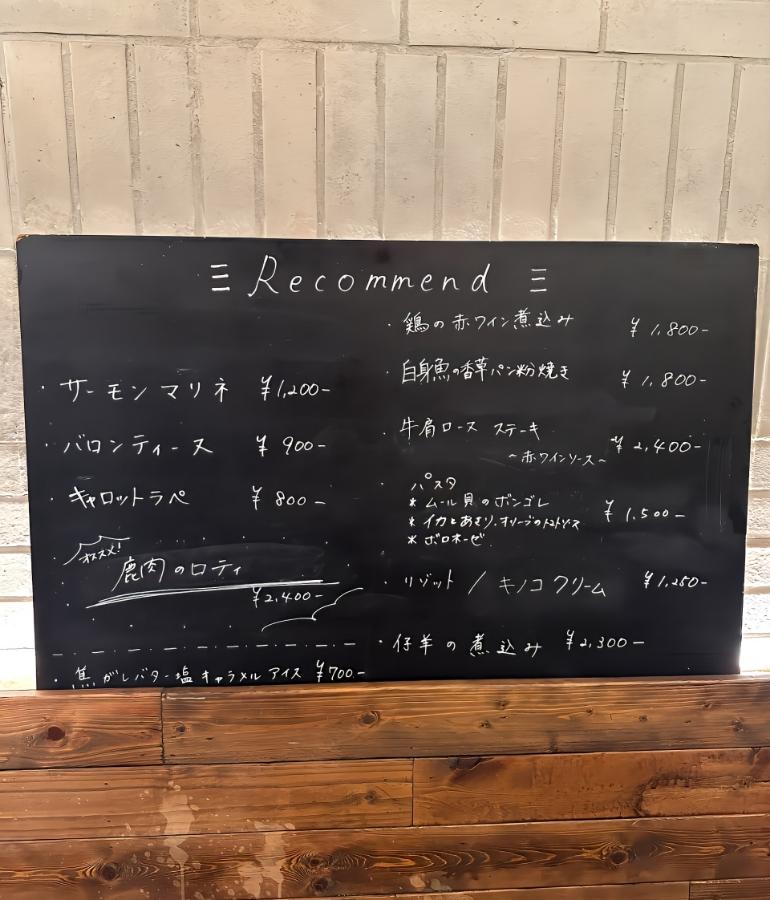 三 Recommend 三
・サーモンマリネ ¥1,200-
・バロンティーヌ ¥900-
・キャロットラペ ¥800-
オススメ!
鹿肉のロティ
¥2,400-
・焦がしバター塩キャラメルアイス ¥700-
・鶏の赤ワイン煮込み ¥1,800-
・白身魚の香草パン粉焼き ¥1,800-
・牛肩ロース ステーキ ¥2,400-
~赤ワインソース~
・パスタ
*ムール貝のボンゴレ
*イカとあさり、オリーブのトマトソース ¥1,500-
*ボロネーゼ
・リゾット / キノコクリーム ¥1,250-
・仔羊の煮込み ¥2,300-